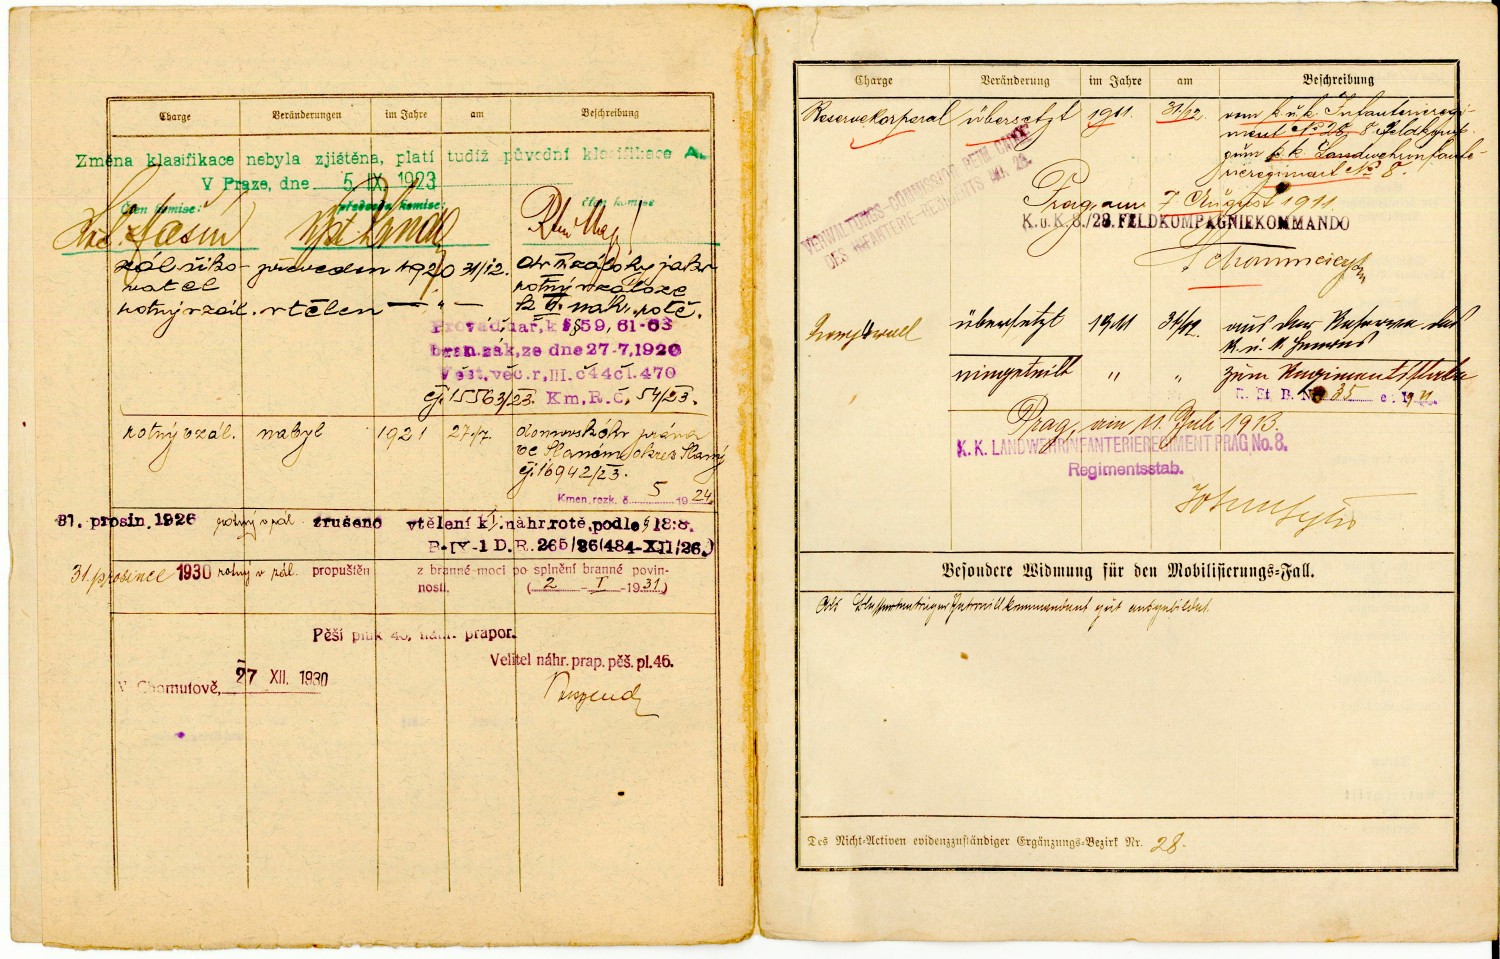 Charge Veränderungen im Jahre am Beschreibung
Změna klasifikace nebyla zjištěna, platí tudíž původní klasifikace A.
V Praze, dne 5 IX 1923
Člen komise: předseda komise: člen komise
převeden 1920 31/12.
rotný v zálóze
rotný v zál. vtělen — " — k náhr. rotě.
Prováď. nař. k §§ 59, 61-63
bran. zák. ze dne 27-7, 1920
Věst. věc. r, III. č 44 čl. 470
čj. 15563/23. Km. R. č. 54/23.
rotný v zál. nabyl 1921 27/7. domovského práva
ve Slaném okres Slaný
čj. 16942/23.
Kmen. rozk. č. 5 1924.
31. prosin. 1926 rotný v zál. zrušeno vtělení k náhr. rotě, podle § 18:8.
B-IV-1 D. R. 265/26 (484-XII/26.)
31. prosince 1930 rotný v zál. propuštěn z branné moci po splnění branné povin-
nosti. (2 - I - 1931)
Pěší pluk 46, náhr. prapor.
Velitel náhr. prap. pěš. pl. 46.
V Chomutově, 27 XII. 1930
Charge Veränderung im Jahre am Beschreibung
Reservekorporal übersetzt 1911 31/12. vom k. u. k. Infanterieregi-
ment No 28, 8 Feldkomp.
zum k. k. Landwehrinfante-
rieregiment No 8.
VERWALTUNGS-COMMISSION BEIM CADRE
DES INFANTERIE-REGIMENTS NR. 28.
Prag, am 7 August 1911
K. u. K. 8./28. FELDKOMPAGNIEKOMMANDO
übersetzt 1911 31/12. aus der Reserve des
k. u. k. Heeres
eingeteilt " " zum Regimentsstabe
Prag, am 11. Juli 1913.
K. K. LANDWEHRINFANTERIEREGIMENT PRAG No. 8.
Regimentsstab.
Besondere Widmung für den Mobilisierungs-Fall.
Als Patrouillkommandant gut ausgebildet.
Des Nicht-Activen evidenzzuständiger Ergänzungs-Bezirk Nr. 28.